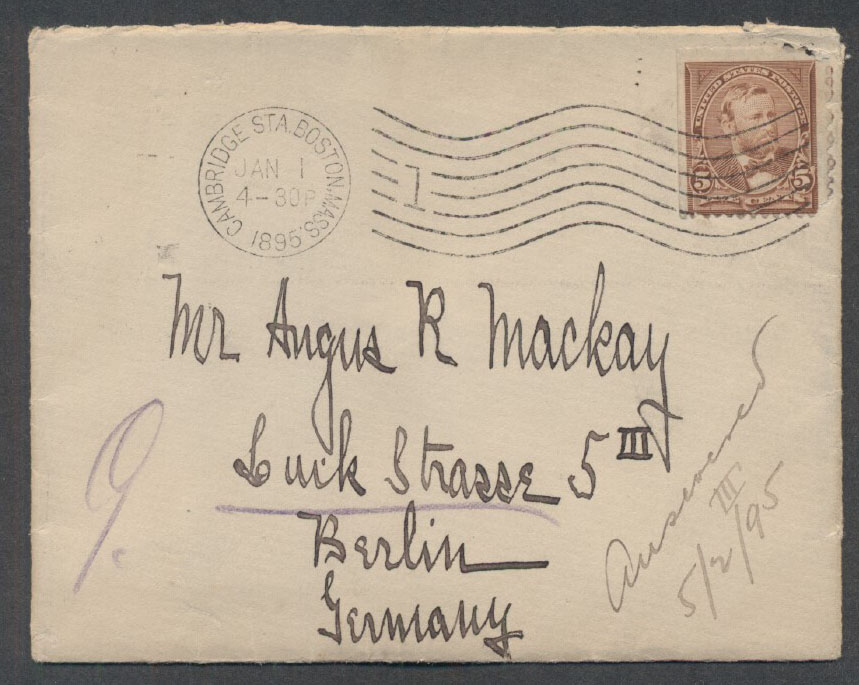 CAMBRIDGE STA. BOSTON, MASS.
JAN 1
4-30P
1895
1
UNITED STATES POSTAGE
5 5
Mr Angus R Mackay
Luck Strasse 5 III
Berlin
Germany
9.
Answered
III
5/2/95